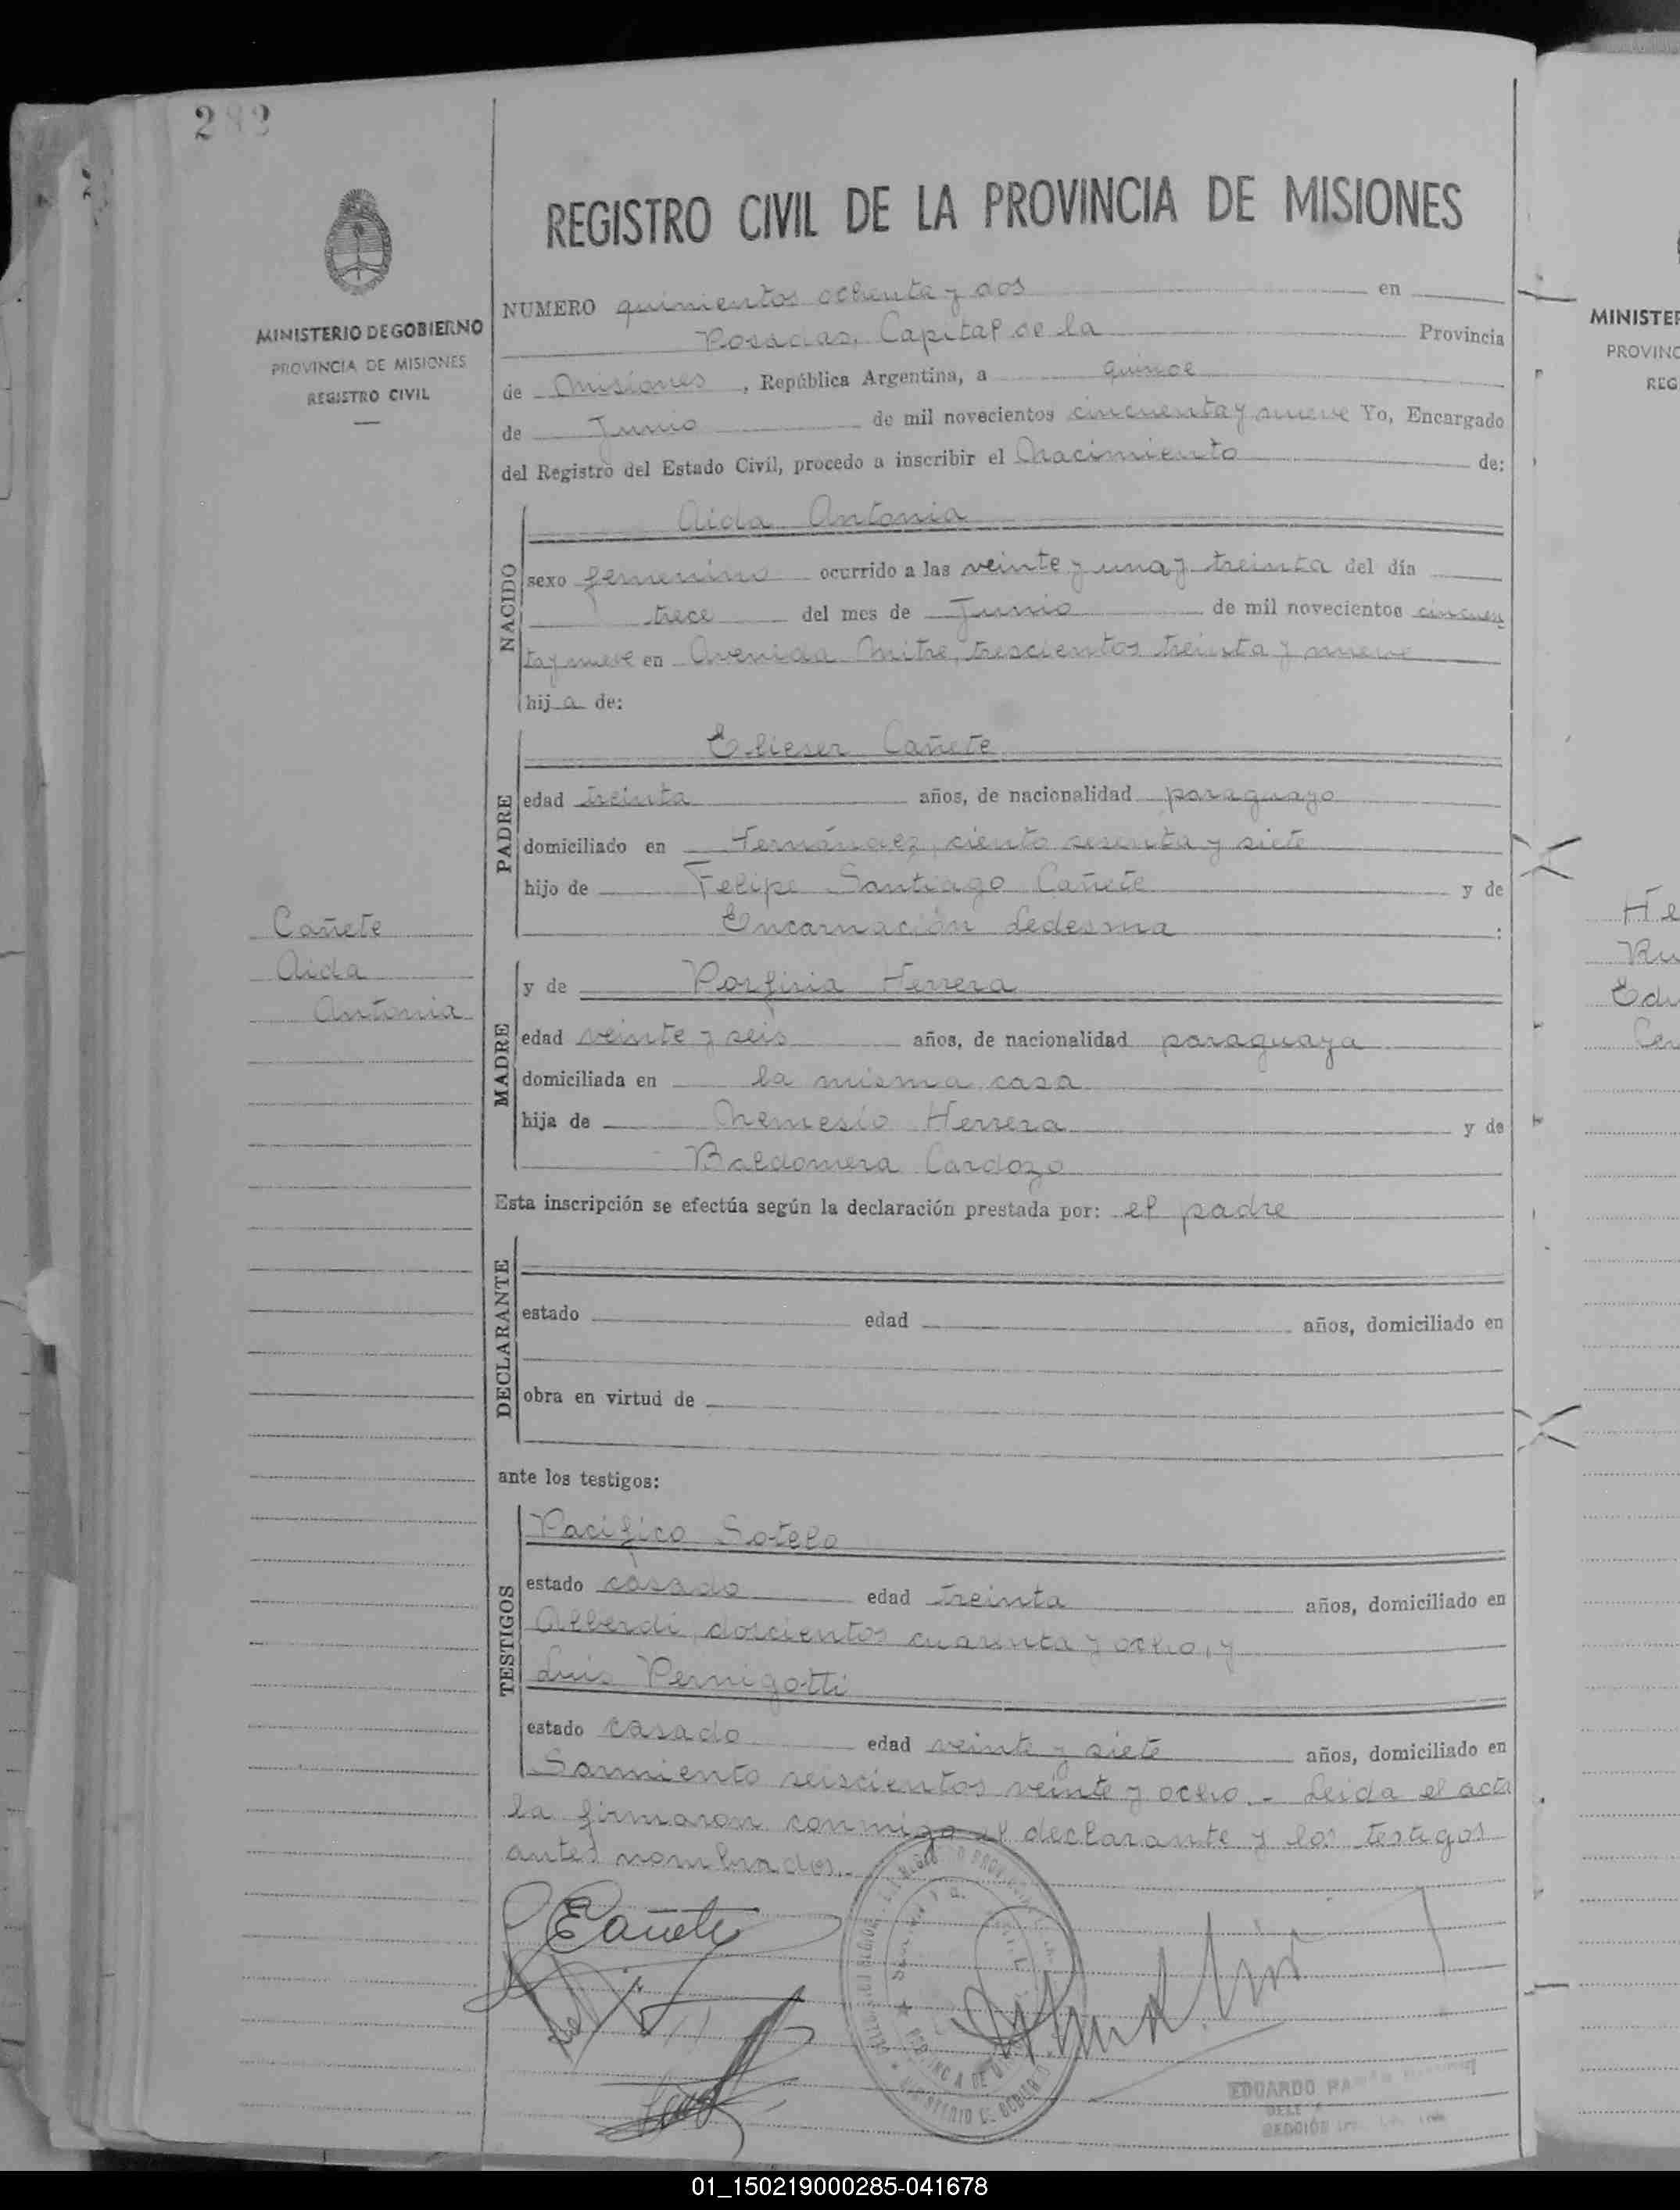 282
REGISTRO CIVIL DE LA PROVINCIA DE MISIONES
MINISTERIO DE GOBIERNO
PROVINCIA DE MISIONES
REGISTRO CIVIL
NUMERO quinientos ochenta y dos en
Posadas, Capital de la Provincia
de Misiones, República Argentina, a quince
de Junio de mil novecientos cincuenta y nueve Yo, Encargado
del Registro del Estado Civil, procedo a inscribir el Nacimiento de:
NACIDO
Aida Antonia
sexo femenino ocurrido a las veinte y una y treinta del día
trece del mes de Junio de mil novecientos cincuen
ta y nueve en Avenida Mitre, trescientos treinta y nueve
hija de:
PADRE
Elieser Cañete
edad treinta años, de nacionalidad paraguayo
domiciliado en Hernández, ciento sesenta y siete
hijo de Felipe Santiago Cañete y de
Encarnación Ledesma :
Cañete
Aida
Antonia
MADRE
y de Porfiria Herrera
edad veinte y seis años, de nacionalidad paraguaya
domiciliada en la misma casa
hija de Nemesio Herrera y de
Baldomera Cardozo
Esta inscripción se efectúa según la declaración prestada por: el padre
DECLARANTE
estado edad años, domiciliado en
obra en virtud de
ante los testigos:
TESTIGOS
Pacífico Sotelo
estado casado edad treinta años, domiciliado en
Alberdi, doscientos cuarenta y ocho, y
Luis Pernigotti
estado casado edad veinte y siete años, domiciliado en
Sarmiento seiscientos veinte y ocho.- Leida el acta
la firmaron conmigo el declarante y los testigos
antes nombrados.-
ECañete
EDUARDO
MINISTER
PROVINC
REG
He
Ru
Edu
01_150219000285-041678